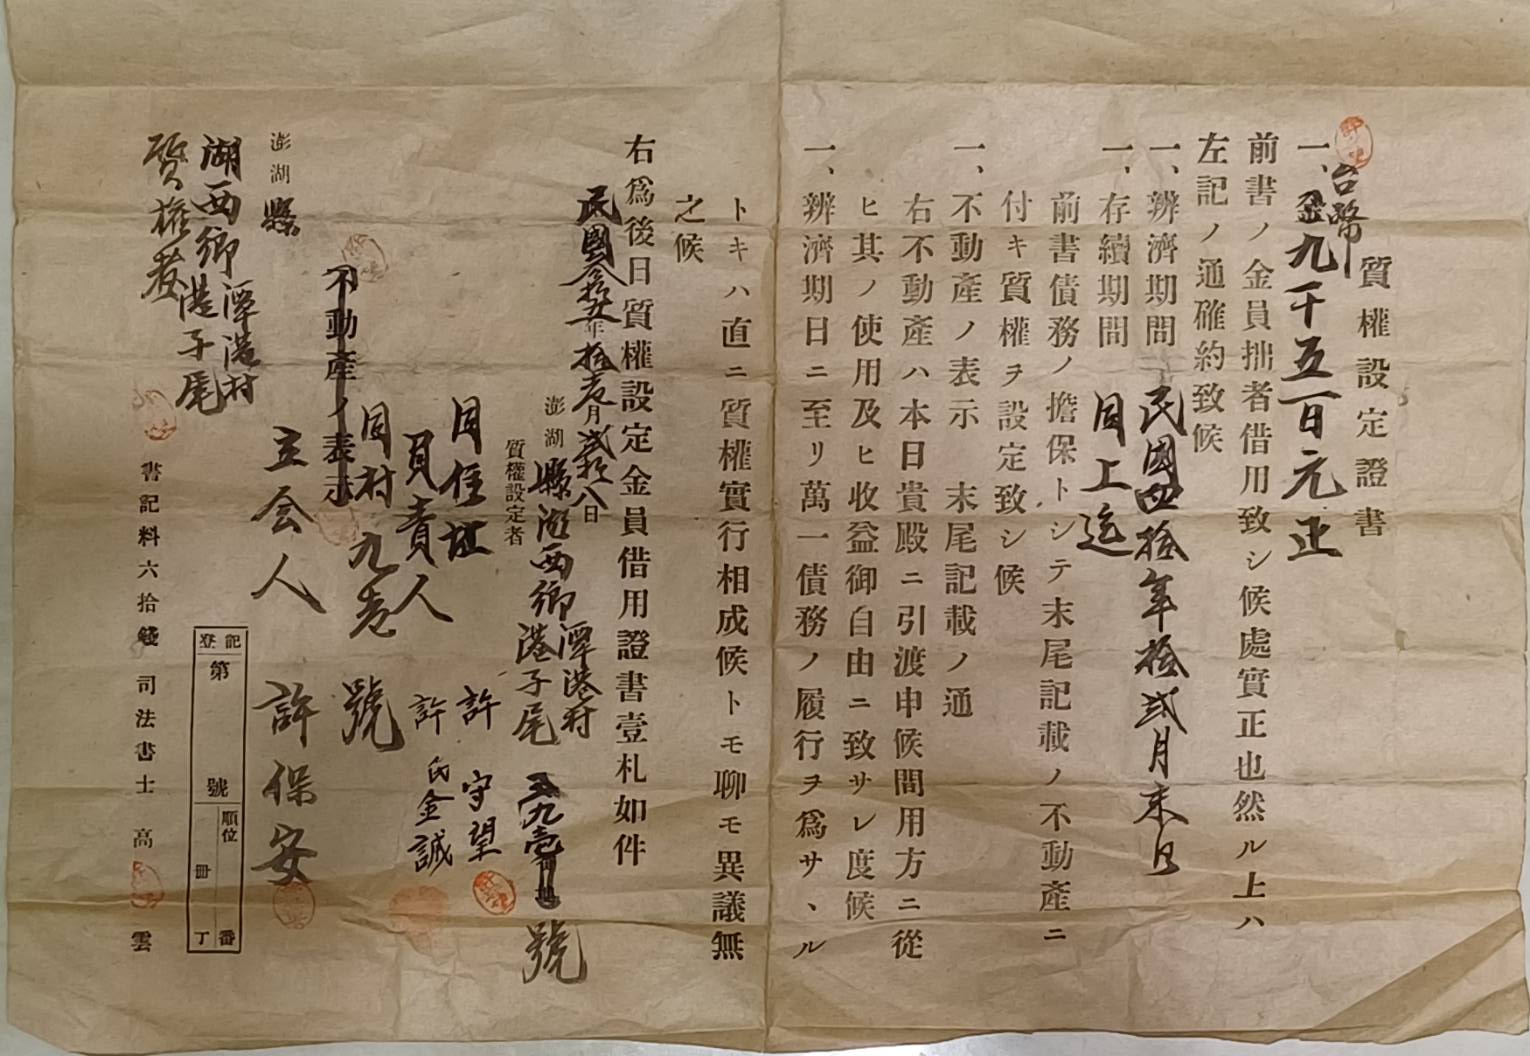 質權設定證書
台幣
一、金九千五百元正
前書ノ金員拙者借用致シ候處實正也然ル上ハ
左記ノ通確約致候
一、辨濟期間 民國四拾年拾貳月末日
一、存續期間 同上迄
前書債務ノ擔保トシテ末尾記載ノ不動產ニ
付キ質權ヲ設定致シ候
一、不動產ノ表示 末尾記載ノ通
右不動產ハ本日貴殿ニ引渡申候間用方ニ從
ヒ其ノ使用及ヒ收益御自由ニ致サレ度候
一、辨濟期日ニ至リ萬一債務ノ履行ヲ爲サヽル
トキハ直ニ質權實行相成候トモ聊モ異議無
之候
右爲後日質權設定金員借用證書壹札如件
民國參拾五年拾壱月貳拾八日
澎湖縣湖西鄉潭港村
港子尾 九壱號
質權設定者
許守望
同住址
負責人
許氏金誠
同村九壱號
不動產ノ表示
立会人 許保安
澎湖縣
湖西鄉潭港村
港子尾
質權者
登記
第 號
順位 番
冊 丁
書記料六拾錢 司法書士 高 雲